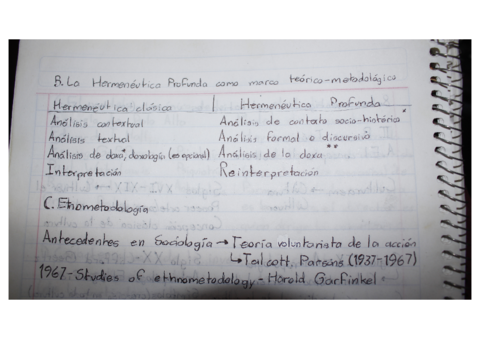 B. La Hermenéutica Profunda como marco teórico-metodológico
Hermenéutica clásica | Hermenéutica Profunda
Análisis contextual Análisis de contexto socio-histórico*
Análisis textual Análisis formal o discursivo
Análisis de doxa, doxología (es opcional) Análisis de la doxa**
Interpretación Reinterpretación
C. Etnometodología
Antecedentes en Sociología → Teoría voluntarista de la acción
↳ Talcott Parsons (1937-1967)
1967-Studies of ethnometodology - Harold Garfinkel